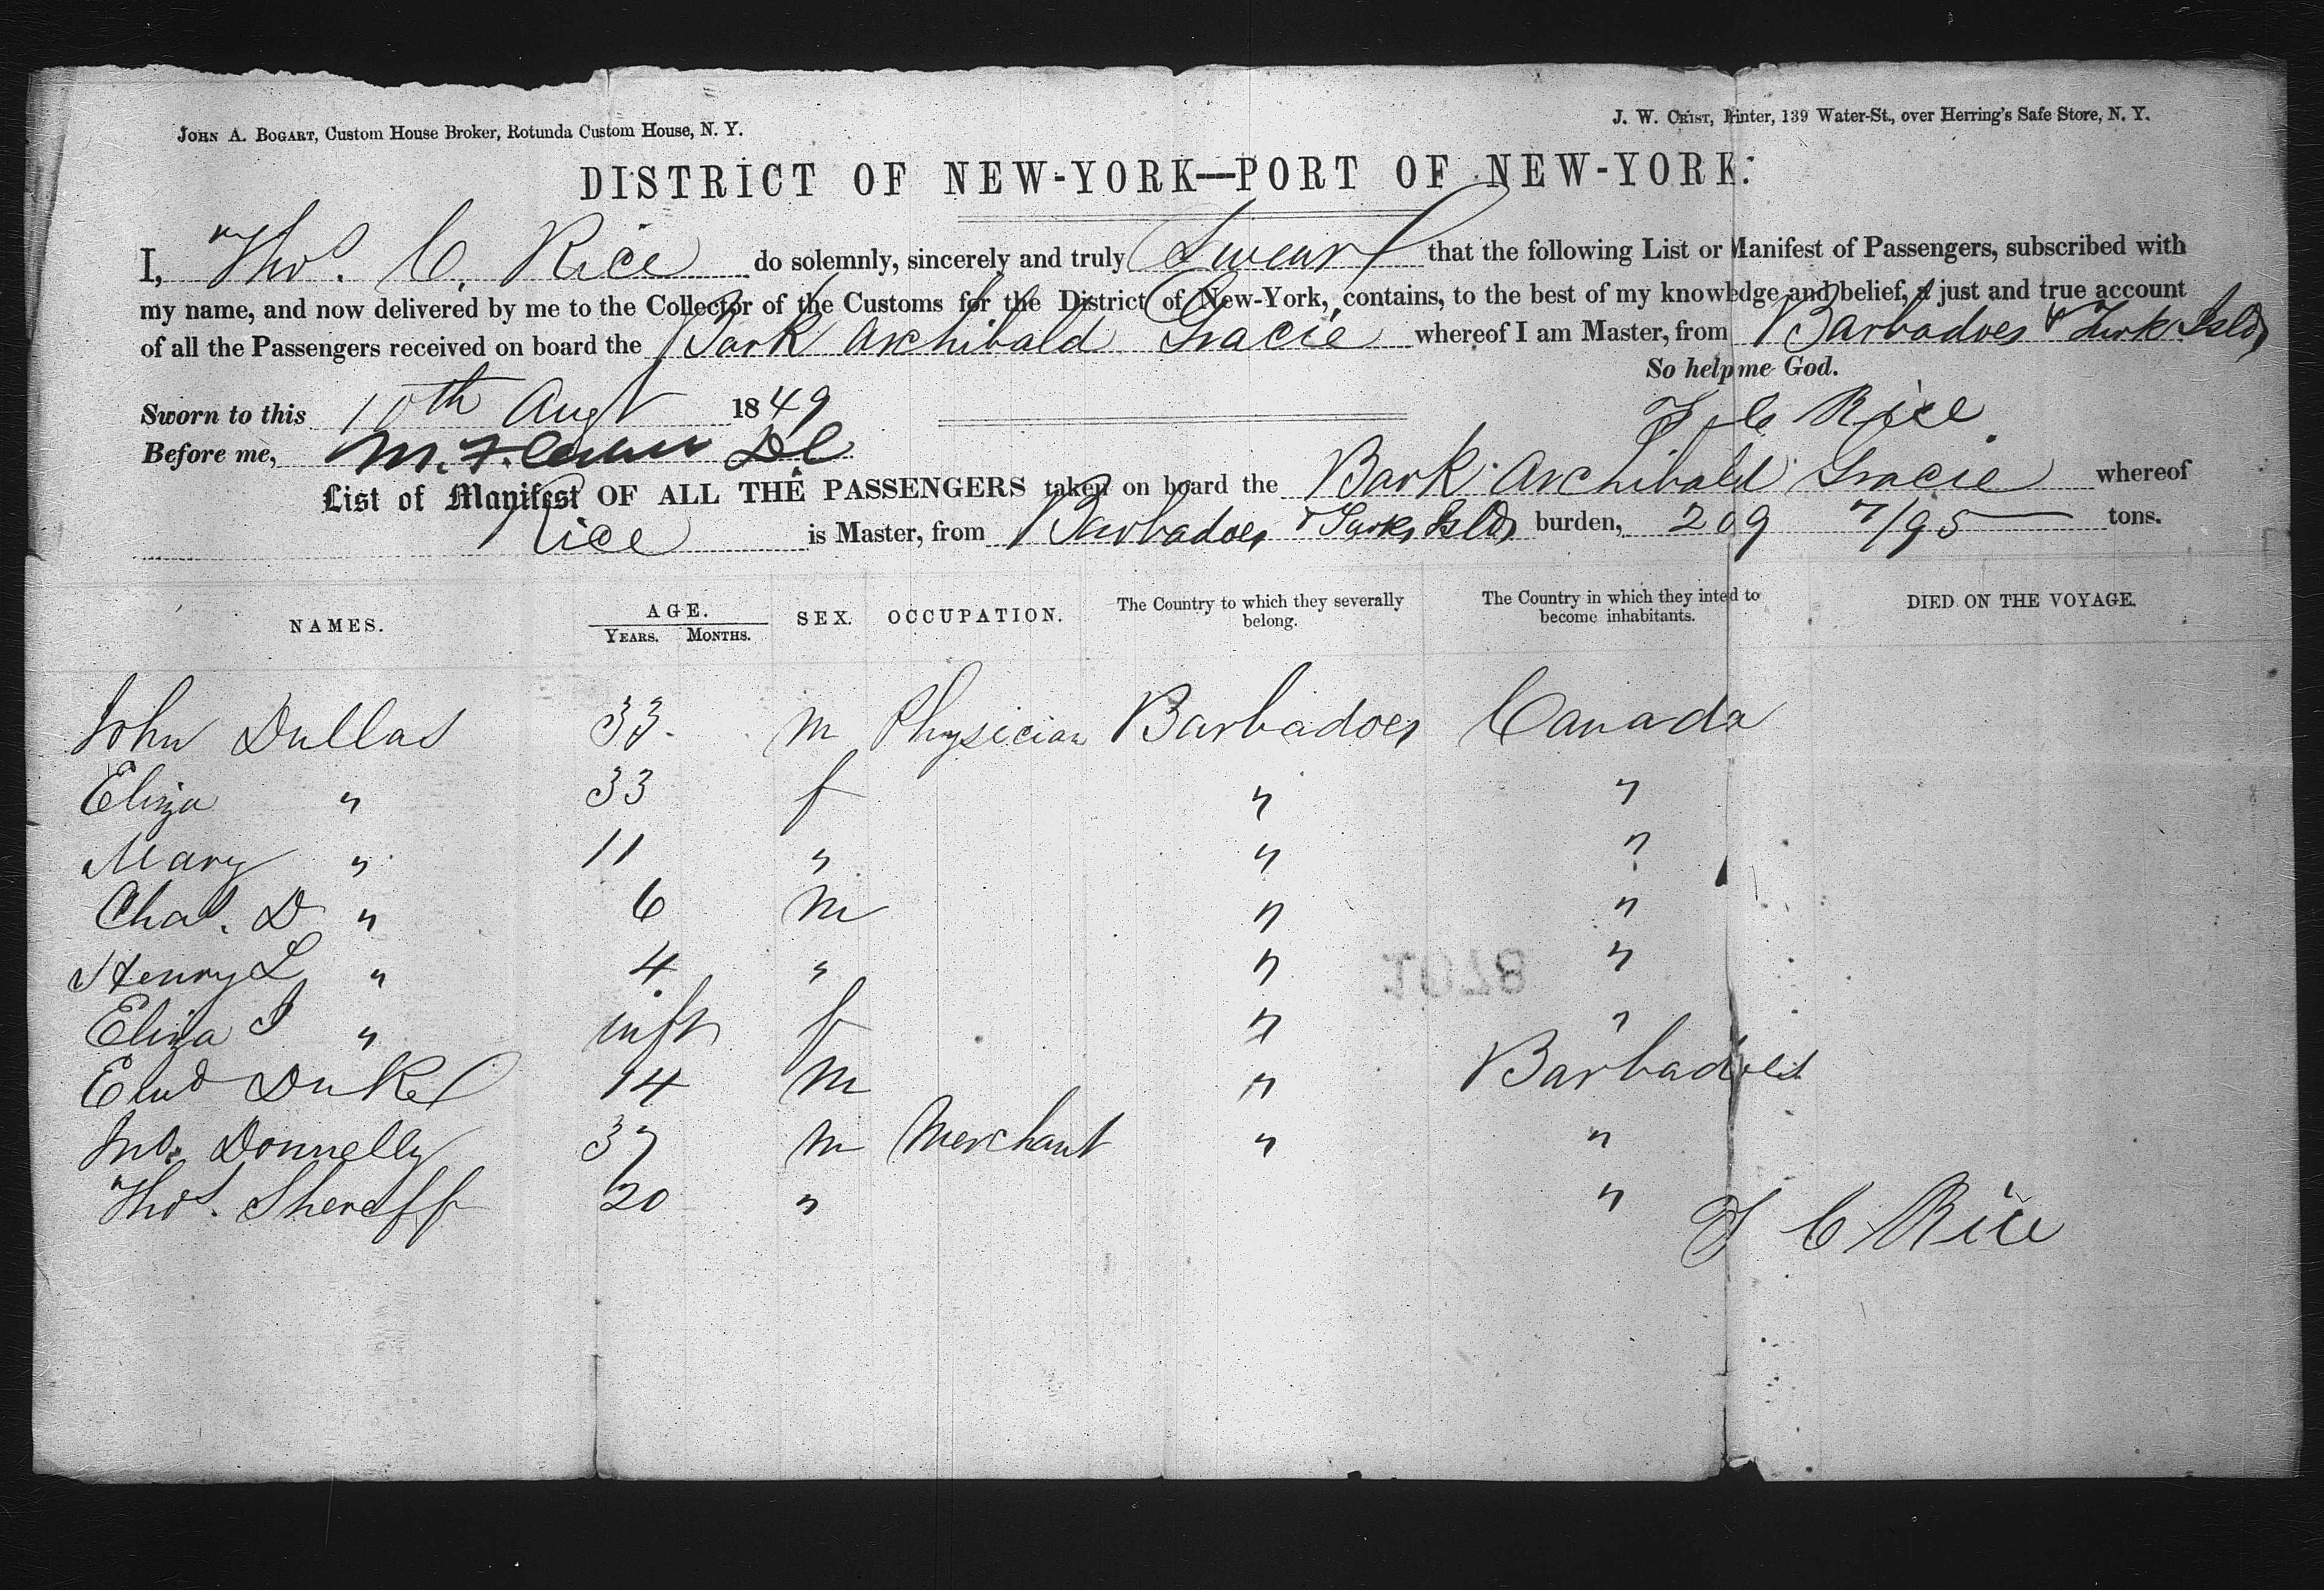 JOHN A. BOGART, Custom House Broker, Rotunda Custom House, N. Y.
J. W. CRIST, Printer, 139 Water-St., over Herring's Safe Store, N. Y.
DISTRICT OF NEW-YORK—PORT OF NEW-YORK:
I, Thos. C. Rice do solemnly, sincerely and truly Swear that the following List or Manifest of Passengers, subscribed with
my name, and now delivered by me to the Collector of the Customs for the District of New-York, contains, to the best of my knowledge and belief, a just and true account
of all the Passengers received on board the Bark Archibald Gracie whereof I am Master, from Barbadoes & Turks Islds
So help me God.
Sworn to this 10th Augt 1849
T C Rice
Before me, M. F. DC
List of Manifest OF ALL THE PASSENGERS taken on board the Bark Archibald Gracie whereof
Rice is Master, from Barbadoes & Turks Islds burden, 209 7/95 tons.
NAMES. AGE. YEARS. MONTHS. SEX. OCCUPATION. The Country to which they severally belong. The Country in which they inted to become inhabitants. DIED ON THE VOYAGE.
John Dullas 33 m Physician Barbadoes Canada
Eliza " 33 f " "
Mary " 11 " " "
Chas. D " 6 m " "
Henry L " 4 " " "
1078
Eliza J " inft f " "
Edwd Dukes 14 m " Barbadoes
Jno. Donnelly 37 m Merchant " "
Thos. Shereff 20 " "
T C Rice